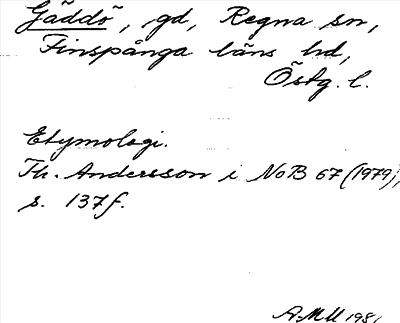 Gäddö, gd, Regna sn,
Finspånga läns hd,
Östg. l.
Etymologi.
Th. Andersson i NoB 67 (1979),
s. 137 f.
AMU 1981